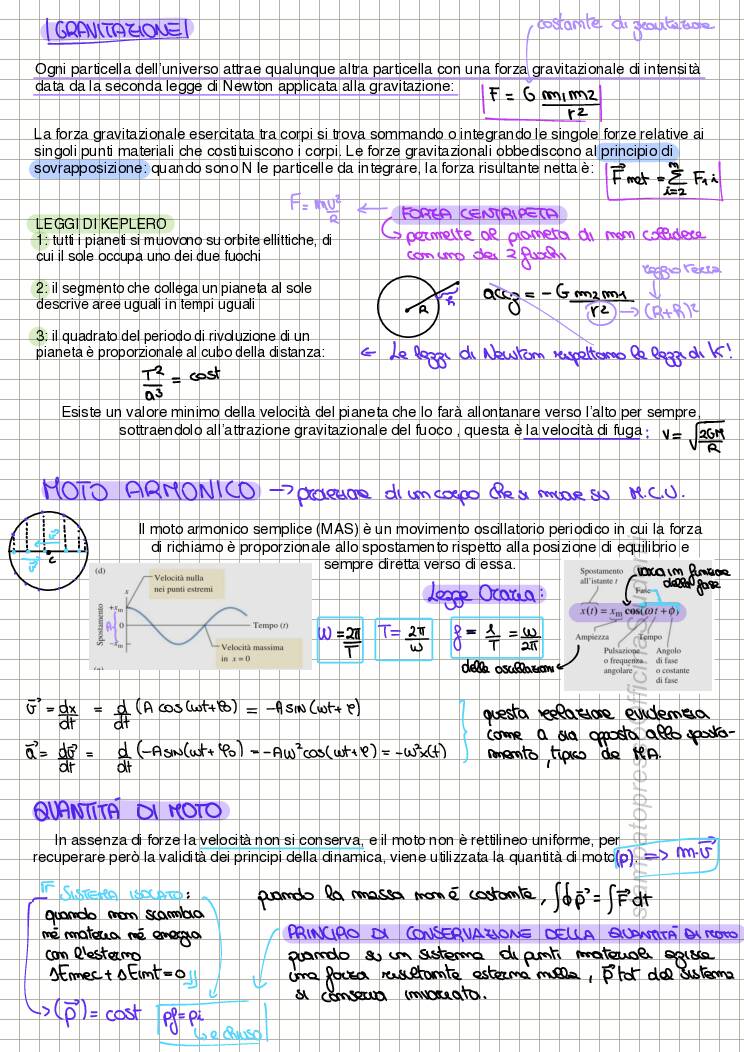 GRAVITAZIONE
costante di gravitazione
Ogni particella dell'universo attrae qualunque altra particella con una forza gravitazionale di intensità
data da la seconda legge di Newton applicata alla gravitazione: F = G m1m2/r²
La forza gravitazionale esercitata tra corpi si trova sommando o integrando le singole forze relative ai
singoli punti materiali che costituiscono i corpi. Le forze gravitazionali obbediscono al principio di
sovrapposizione: quando sono N le particelle da integrare, la forza risultante netta è: F⃗net = Σ i=2 n F1i
F = mv²/R ← FORZA CENTRIPETA
↳ permette al pianeta di non collidere
con uno dei 2 fuochi
LEGGI DI KEPLERO
1: tutti i pianeti si muovono su orbite ellittiche, di
cui il sole occupa uno dei due fuochi
2: il segmento che collega un pianeta al sole
descrive aree uguali in tempi uguali
3: il quadrato del periodo di rivoluzione di un
pianeta è proporzionale al cubo della distanza:
T²/a³ = cost
R h
raggio terra
accg = -G m2m1/r² → (R+h)²
← Le leggi di Newton rispettano le leggi di K!
Esiste un valore minimo della velocità del pianeta che lo farà allontanare verso l'alto per sempre,
sottraendolo all'attrazione gravitazionale del fuoco , questa è la velocità di fuga : v = √2GM/R
MOTO ARMONICO → proiezione di un corpo che si muove su M.C.U.
Il moto armonico semplice (MAS) è un movimento oscillatorio periodico in cui la forza
di richiamo è proporzionale allo spostamento rispetto alla posizione di equilibrio e
sempre diretta verso di essa.
C
(d)
Spostamento
x
+xm
0
−xm
A
Velocità nulla
nei punti estremi
Tempo (t)
Velocità massima
in x = 0
Legge Oraria:
ω = 2π/T
T = 2π/ω
f = 1/T = ω/2π
delle oscillazioni
Spostamento
all'istante t
varia in funzione
della fase
Fase
x(t) = xm cos(ωt + ϕ)
Ampiezza
Tempo
Pulsazione
o frequenza
angolare
Angolo
di fase
o costante
di fase
v⃗ = dx/dt = d/dt (A cos(ωt+φ0) = -A sin(ωt+φ)
a⃗ = dv⃗/dt = d/dt (-A sin(ωt+φ0) = -Aω² cos(ωt+φ) = -ω²x(t)
questa relazione evidenzia
come a sia opposta allo sposta-
mento, tipico de MA.
QUANTITÀ DI MOTO
In assenza di forze la velocità non si conserva, e il moto non è rettilineo uniforme, per
recuperare però la validità dei principi della dinamica, viene utilizzata la quantità di moto (p). => m·v⃗
SISTEMA ISOLATO:
quando non scambia
né materia né energia
con l'esterno
ΔEmec + ΔEint = 0
↳ (p⃗) = cost
pf = pi
↳ è chiuso
quando la massa non è costante, ∫dp⃗ = ∫F⃗dt
PRINCIPIO DI CONSERVAZIONE DELLA QUANTITÀ DI MOTO
quando su un sistema di punti materiali agisce
una forza risultante esterna nulla, p⃗tot del sistema
si conserva invariata.